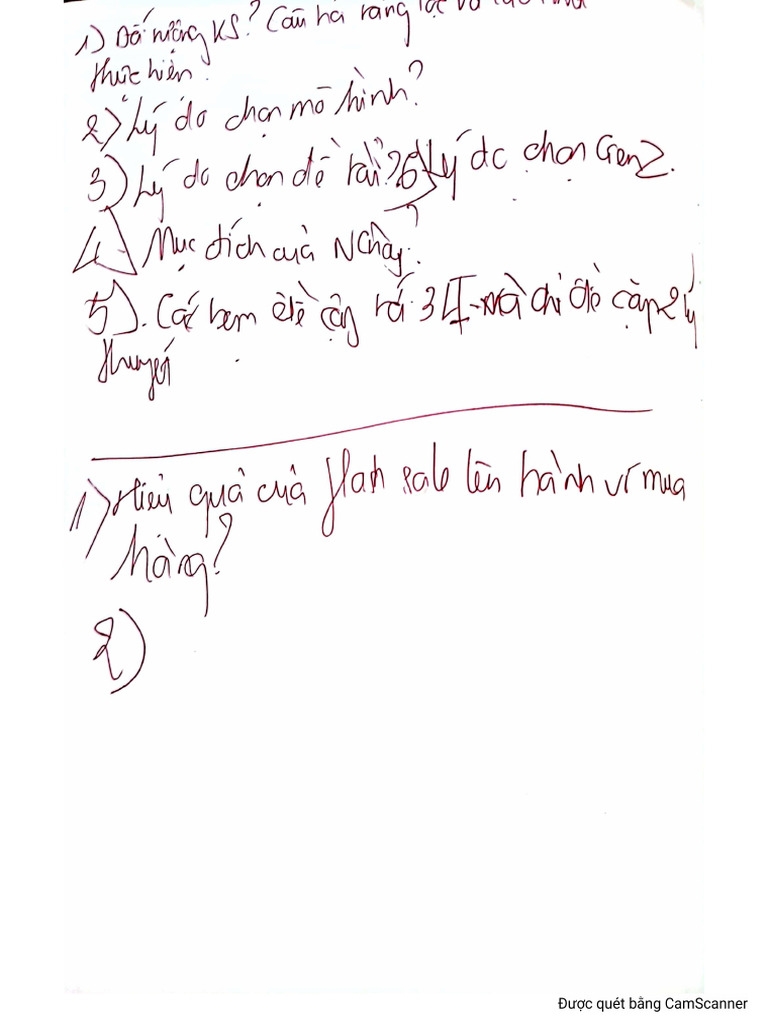 1) Đối tượng KS? Câu hỏi
thực hiện?
2) Lý do chọn mô hình?
3) Lý do chọn đề tài? 6) Lý do chọn GenZ.
4) Mục đích của N này?
5). Các bạn đề cập 3 mà chỉ đề cập 2 lý
thuyết
1) Hiệu quả của flash sale lên hành vi mua
hàng?
2)
Được quét bằng CamScanner